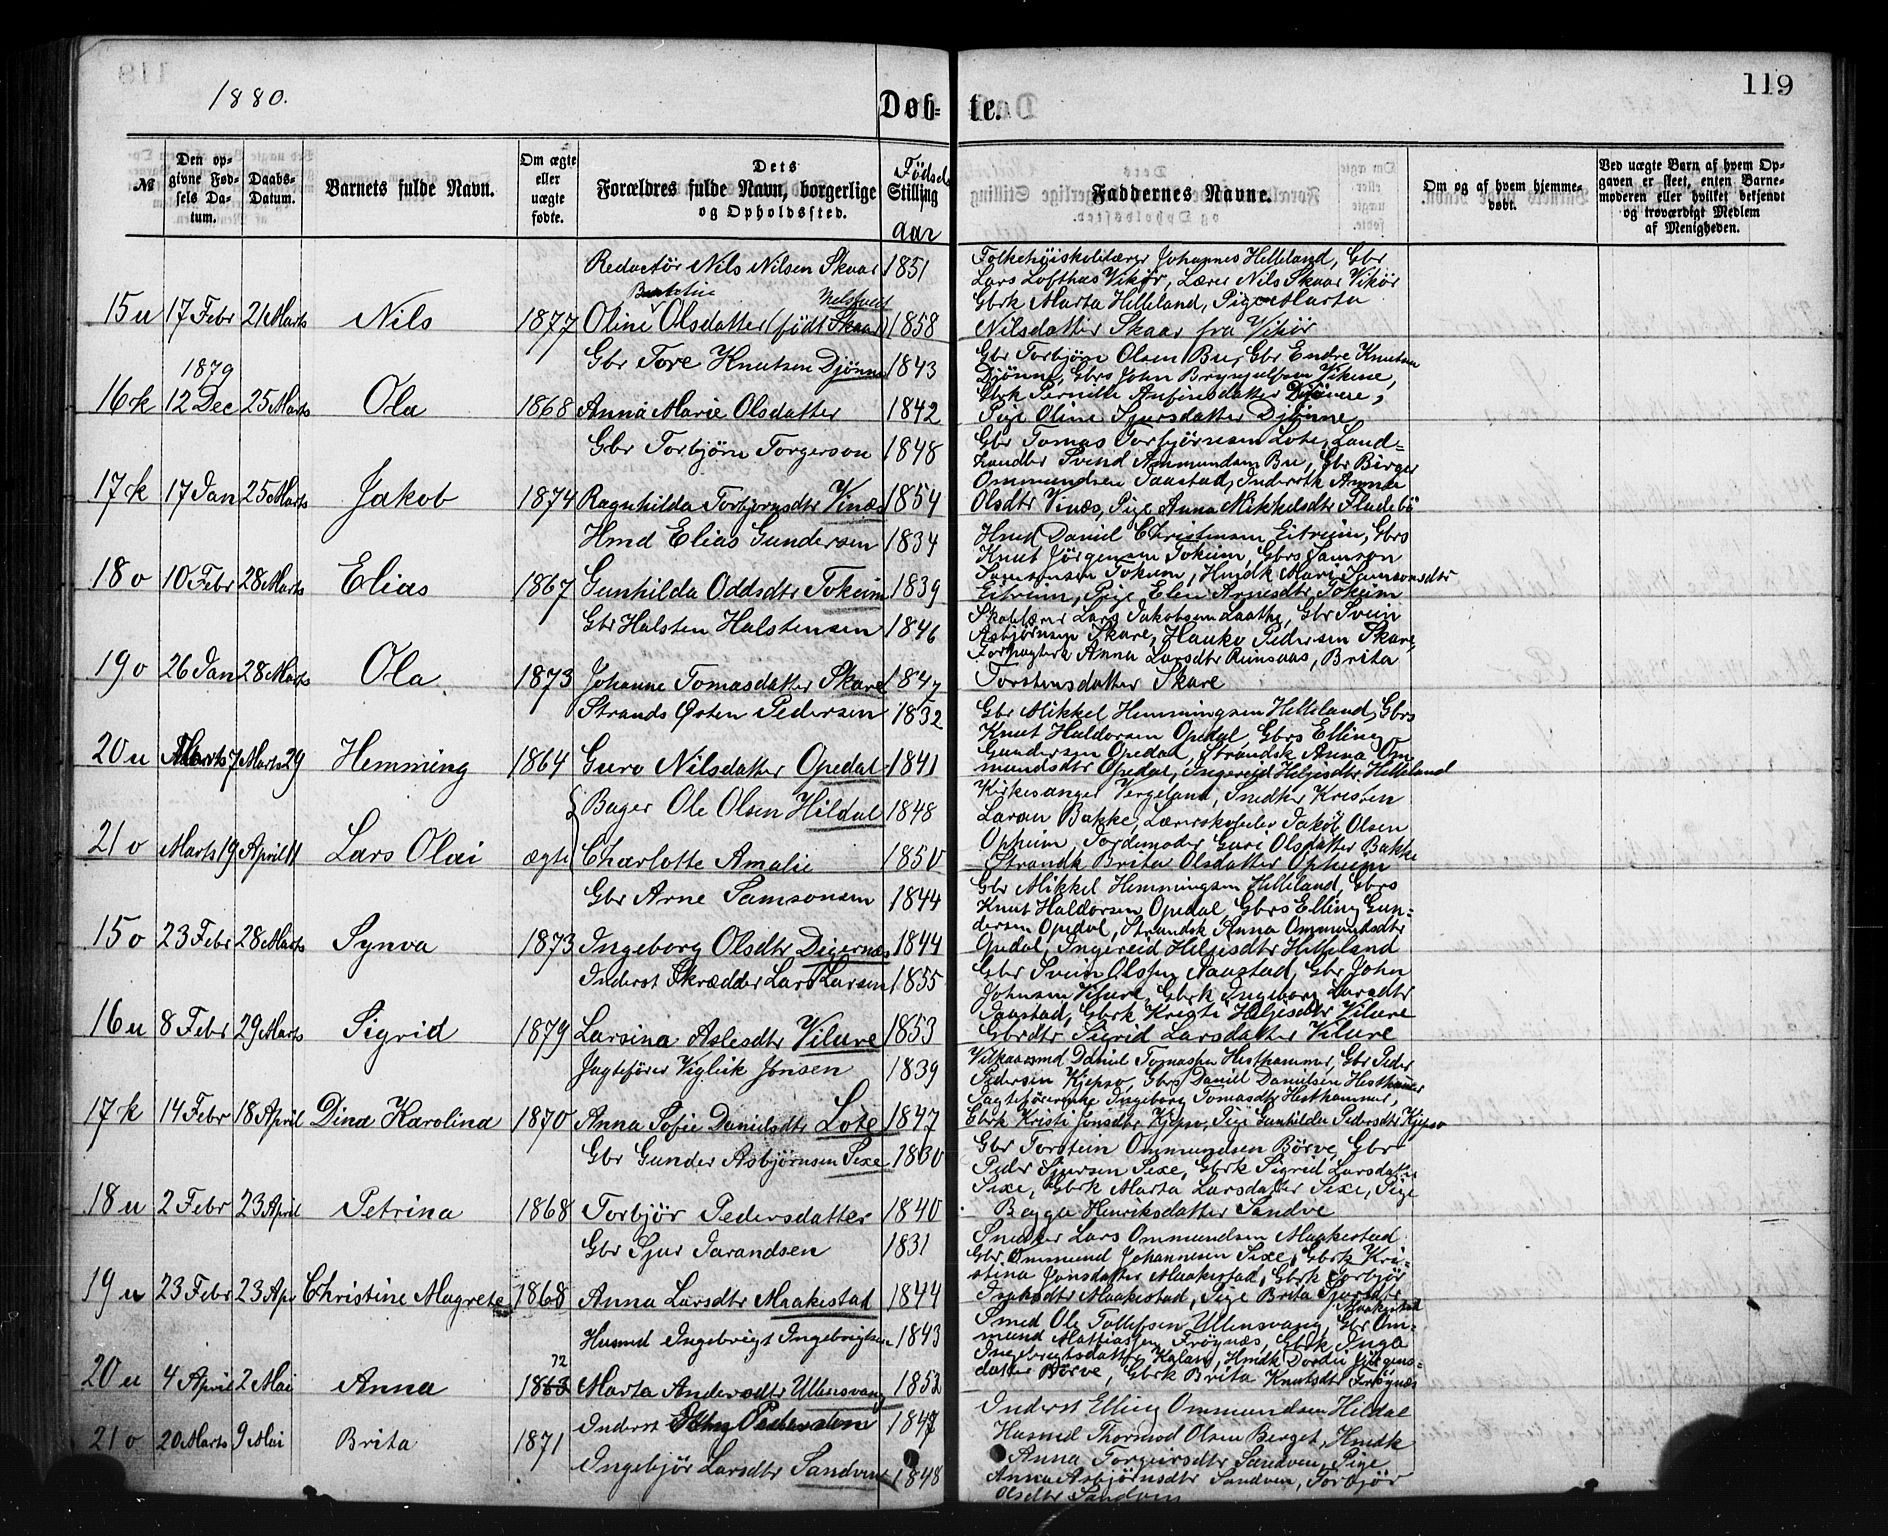 1880.
Døb-
te.
119
№
Den op-
givne Fød-
sels Da-
tum.
Daabs-
Datum.
Barnets fulde Navn.
Om ægte
eller
uægte
fødte.
Dets
Forældres fulde Navn, borgerlige
og Opholdssted.
Fødsels
Stilling
aar
Faddernes Navne.
Om og af hvem hjemme-
døbt.
Ved uægte Barn af hvem Op-
gaven er skeet, enten Barne-
moderen eller hvilket bekjendt
og troværdigt Medlem
af Menigheden.
Redactør Nils Nilsen Skaar 1851
15 u 17 Febr 21 Marts Nils 1877 Oline Olsdatter (født Skaar) 1858
Folkehöiskolelærer Johannes Helleland, Gbr
Lars Lofthus Vikør, Lærer Nils Skaar Vikør
Gbrk Marta Helleland, Pige Marta
Nilsdatter Skaar fra Vikør
Gbr Tore Knutsen Djønne 1843
1879
16 k 12 Dec 25 Marts Ola 1868 Anna Marie Olsdatter 1842
Gbr Torbjørn Olsen Bu, Gbr Endre Knutsen
Djønne, Gbrs John Brynjulfsen Vikene,
Gbrk Pernille Anfinsdatter Djønne,
Pige Oline Sjursdatter Djønne
Gbr Torbjørn Torgerson 1848
17 k 17 Jan 25 Marts Jakob 1874 Ragnhilda Torbjørnsdtr Vinæs 1854
Gbr Tomas Torbjørnsen Lote, Land-
handler Svend Ammundsen Bu, Gbr Birger
Ommundsen Jaastad, Inderstk Anna
Olsdtr Vinæs, Pige Anna Mikkelsdtr Fladebö
Hmd Elias Gundersen 1834
18 o 10 Febr 28 Marts Elias 1867 Gunhilda Oddsdtr Tokeim 1839
Hmd Daniel Christensen Eitreim, Gbrs
Knut Jørgensen Tokeim, Gbrs Samson
Samsonsen Tokeim, Hmdk Mari Samsonsdtr
Eitreim, Pige Elen Arnesdtr Tokeim
Gbr Halsten Halstensen 1846
19 o 26 Jan 28 Marts Ola 1873 Johanne Tomasdatter Skare 1847
Skolelærer Lars Jakobsen Laathe, Gbr Svein
Asbjørnsen Skare, Hauko Pedersen Skare,
Forpagterk Anna Larsdtr Reinsaas, Brita
Torstensdatter Skare
Strands Østen Pedersen 1832
20 u Marts 7 Marts 29 Hemming 1864 Guro Nilsdatter Opedal 1841
Gbr Mikkel Hemmingsen Helleland, Gbrs
Knut Haldorsen Opedal, Gbrs Elling
Gundersen Opedal, Strandsk Anna Om-
mundsdtr Opedal, Ingereid Helgesdtr Helleland
Bager Ole Olsen Hildal 1848
21 o Marts 19 April 11 Lars Olai ægte Charlotte Amalie 1850
Kirkesanger Vergeland, Snedker Kristen
Larsen Bakke, Lærerskoleelev Jakob Olsen
Opheim, Jordemoder Guri Olsdatter Bakke
Strandk Brita Olsdatter Opheim
Gbr Arne Samsonsen 1844
15 o 23 Febr 28 Marts Synva 1873 Ingeborg Olsdtr Digernæs 1844
Gbr Mikkel Hemmingsen Helleland, Gbrs
Knut Haldorsen Opedal, Gbrs Elling Gun-
dersen Opedal, Strandsk Anna Ommundsdtr
Opedal, Ingereid Helgesdtr Helleland
Inderst Skrædder Lars Larsen 1855
16 u 8 Febr 29 Marts Sigrid 1879 Larsina Aslesdtr Vilure 1853
Gbr Svein Olsen Jaastad, Gbr John
Johnsen Vilure, Gbrk Ingeborg Larsdtr
Jaastad, Gbrk Kristi Helgesdtr Vilure
Gbrdtr Sigrid Larsdatter Vilure
Jagtefører Vigleik Jonsen 1839
17 k 14 Febr 18 April Dina Karolina 1870 Anna Sofie Danielsdtr Lote 1847
Vilkaarsmd Daniel Tomassen Hesthammer, Gbr Peder
Pedersen Kjepso, Gbrs Daniel Danielsen Hesthammer
Jagteførerenke Ingeborg Tomasdtr Hesthammer,
Gbrk Kristi Jonsdtr Kjepso, Pige Gunhilda Pedersdtr Kjepso
Gbr Gunder Asbjørnsen Sexe 1830
18 u 2 Febr 23 April Petrina 1868 Torbjør Pedersdatter 1840
Gbr Torstein Ommundsen Börve, Gbr
Peder Sjursen Sexe, Gbrk Sigrid Larsdatter
Sexe, Gbrk Marta Larsdatter Sexe, Pige
Bagga Henriksdatter Sandve
Gbr Sjur Jarandsen 1831
19 u 23 Febr 23 Apr Christine Magrete 1868 Anna Larsdtr Maakestad 1844
Snedker Lars Ommundsen Maakestad
Gbr Ommund Johannesen Sexe, Gbrk Kri-
stina Jonsdatter Maakestad, Gbrk Torbjør
Maakestad, Pige Brita Sjursdtr
Maakestad
Husmd Ingebrigt Ingebrigtsen 1843
72
20 u 4 April 2 Mai Anna 1863 Marta Andersdtr Ullensvang 1852
Smed Ole Tollefsen Ullensvang, Gbr Om-
mund Mattiassen Frøynæs, Gbrk Inga
Ingebrigtsdatter, Hmdk Dordei Jörgens-
datter Börve, Gbrk Brita Knutsdtr Frøynæs
Inderst Pedersen 1847
21 o 20 Marts 9 Mai Brita 1871 Ingebjør Larsdtr Sandven 1848
Inderst Elling Ommundsen Hildal
Husmd Thormod Olsen Berget, Hmdk
Anna Torgeirsdtr Sandven, Pige
Anna Asbjørnsdtr Sandven, Torbjør
Olsdtr Sandven